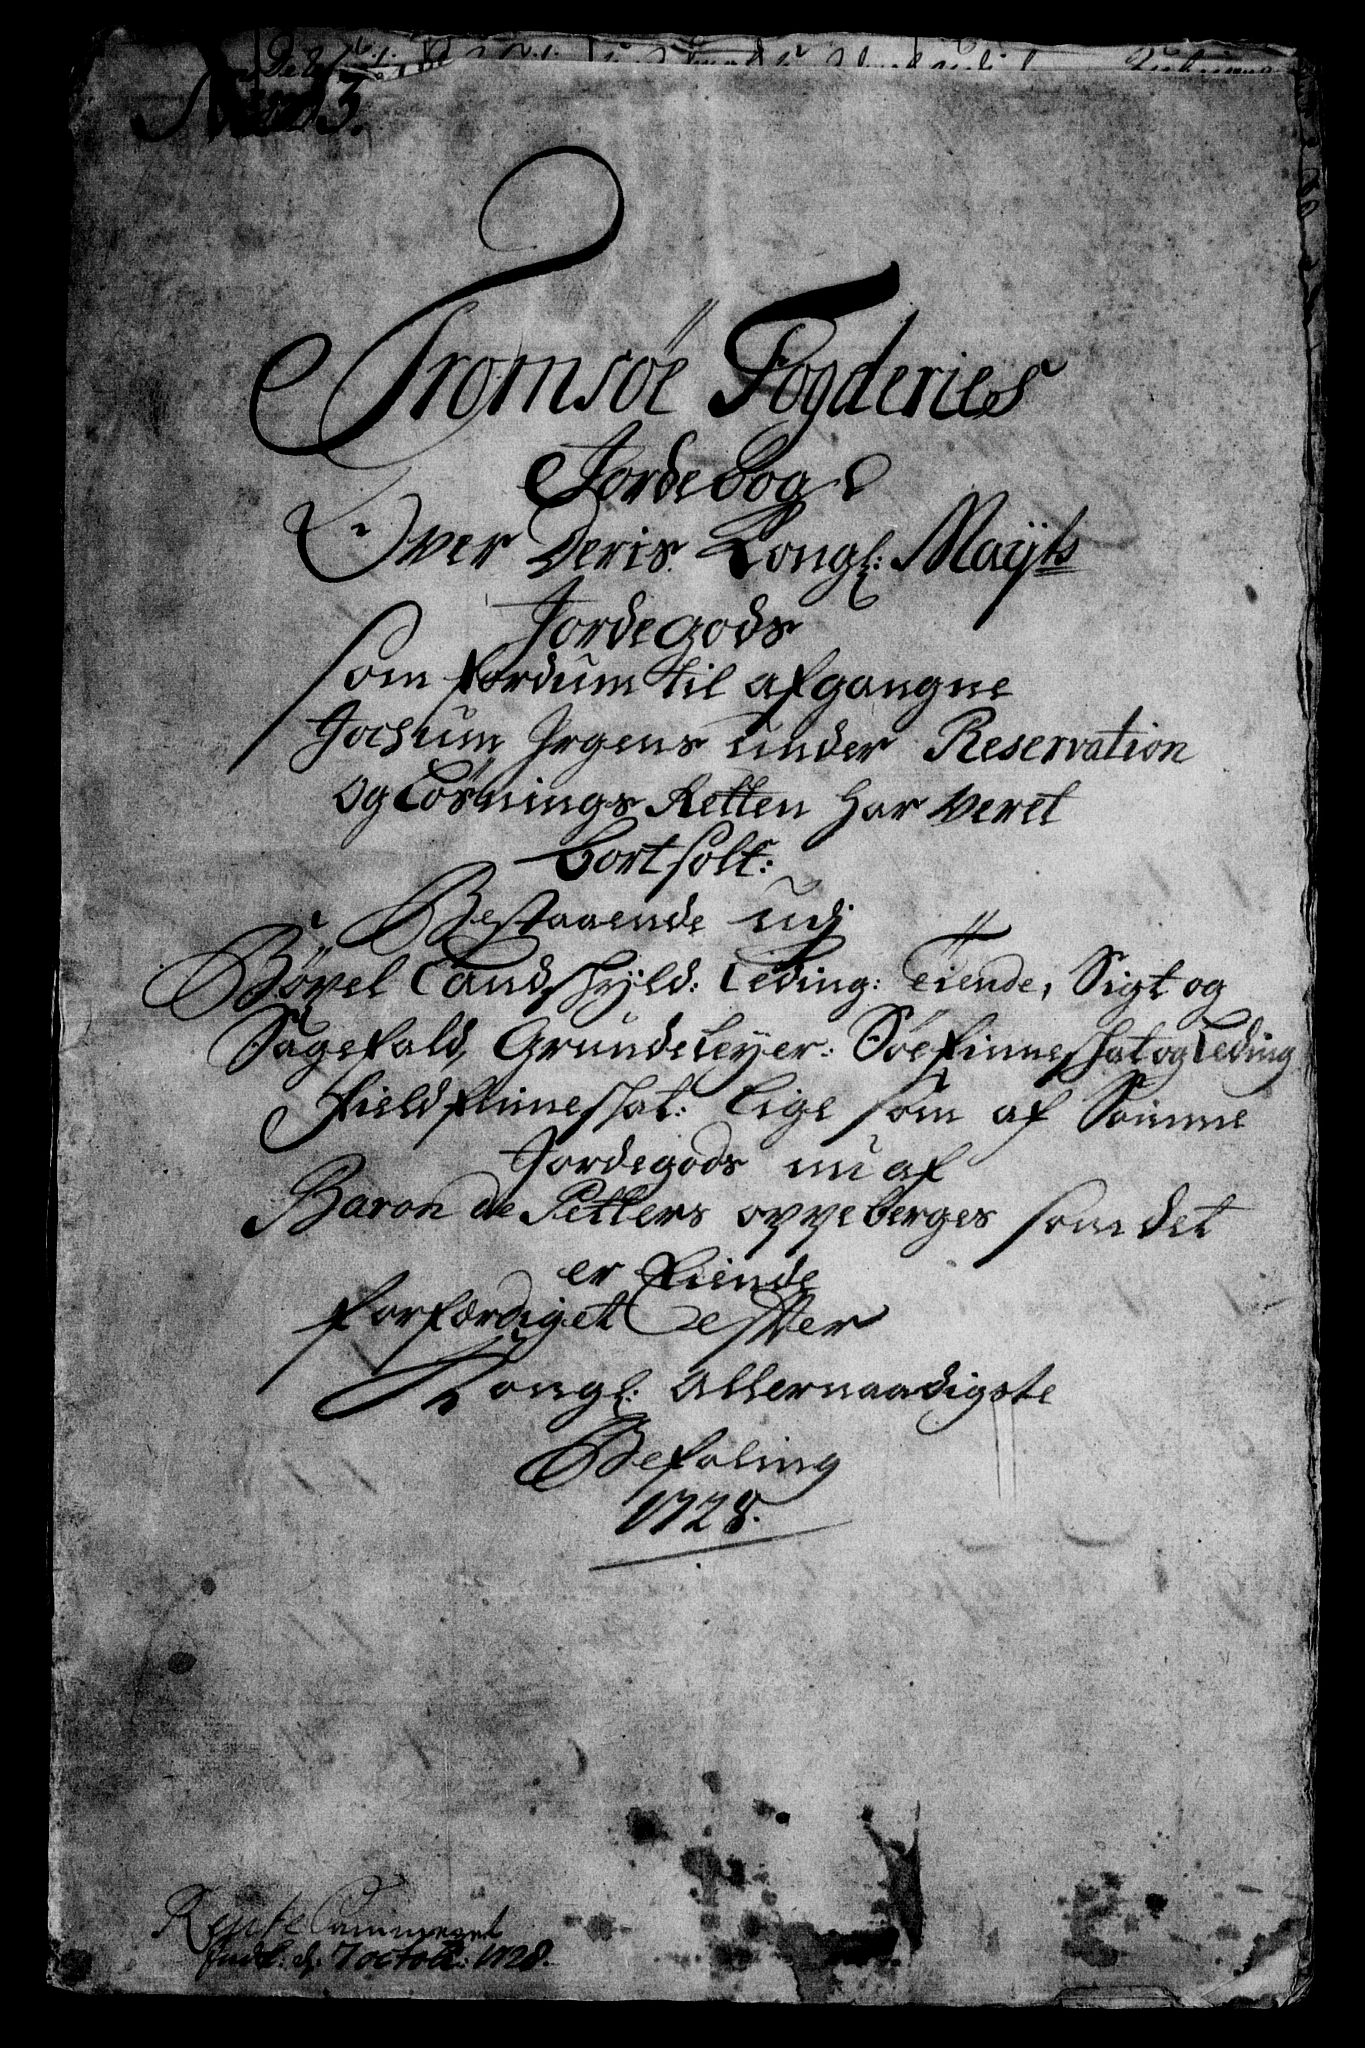 Num 3.
Tromsöe Fogderies
Jordebog
Over Deris Kongl: Mayts
Jordegods
som fordum til afgangne
Jochum Jrgens under Reservation
og Løsnings Retten har veret
bortsolt:
Bestaaende udj
Böxel Landskyld: Leding: Tiende, Sigt og
Sagefald, Grundeleyer: Søefinneskat og Leding
Fieldfinneskat: Lige som af Samme
Jordegods nu af
Baron de Petters oppeberges som det
er fliende
forfærdiget Efter
Kongl: Allernaadigste
Befaling
1728.
Rente Cammeret
Indl: d. 7 octob: 1728.